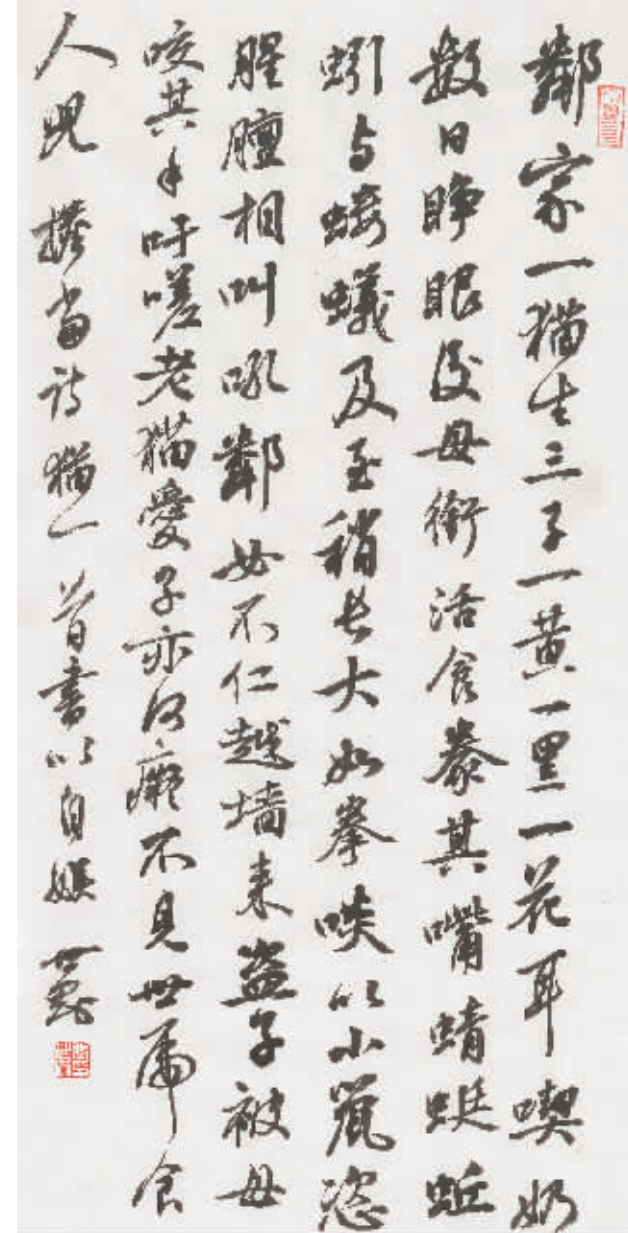 鄰家一猫生三子一黄一黑一花耳喫奶
数日睁眼后母銜活食豢其嘴蜻蜓蚯
蚓与蝼蟻及至稍长大如拳啖以小鼠恣
腥膻相叫吼鄰女不仁越墙来盗子被母
咬其手吁嗟老猫愛子亦何癡不見世虎食
人兒 当诗猫一首書以自娱